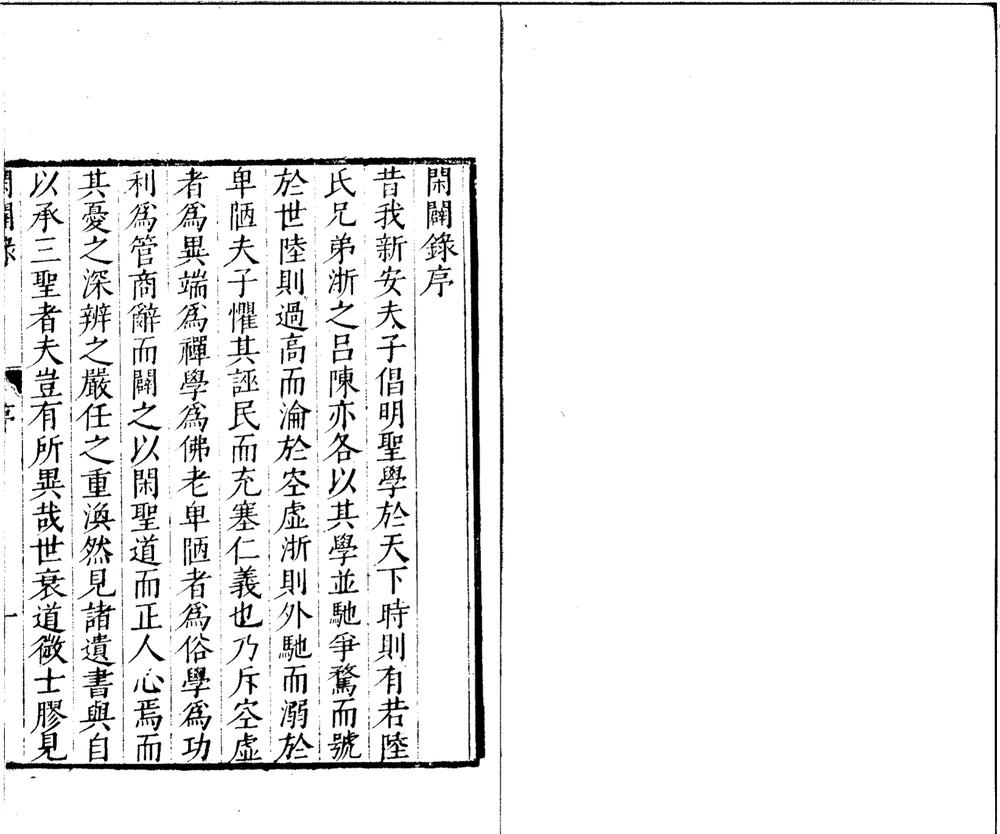 閑闢錄序
昔我新安夫子倡明聖學於天下時則有若陸
氏兄弟浙之呂陳亦各以其學並馳爭騖而號
於世陸則過高而淪於空虛浙則外馳而溺於
卑陋夫子懼其誣民而充塞仁義也乃斥空虛
者爲異端爲禪學爲佛老卑陋者爲俗學爲功
利爲管商辭而闢之以閑聖道而正人心焉而
其憂之深辨之嚴任之重渙然見諸遺書與自
以承三聖者夫豈有所異哉世衰道微士膠見
閑闢錄 序 一